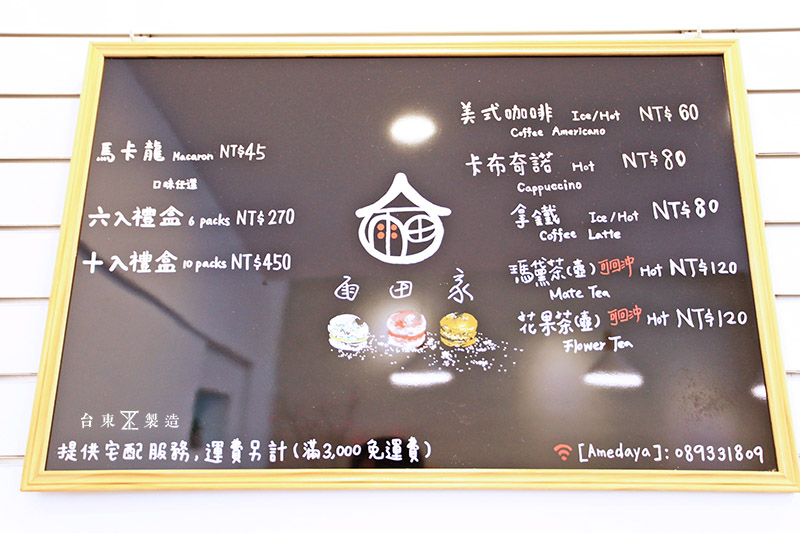 馬卡龍 Macaron NT$45
口味任選
六入禮盒 6 packs NT$270
十入禮盒 10 packs NT$450
雨田家
美式咖啡 Ice/Hot NT$60
Coffee Americano
卡布奇諾 Hot NT$80
Cappuccino
拿鐵 Ice/Hot NT$80
Coffee Latte
瑪黛茶(壺) 可回沖 Hot NT$120
Mate Tea
花果茶(壺) 可回沖 Hot NT$120
Flower Tea
台東製造
提供宅配服務,運費另計(滿3,000免運費)
[Amedaya]: 089331809